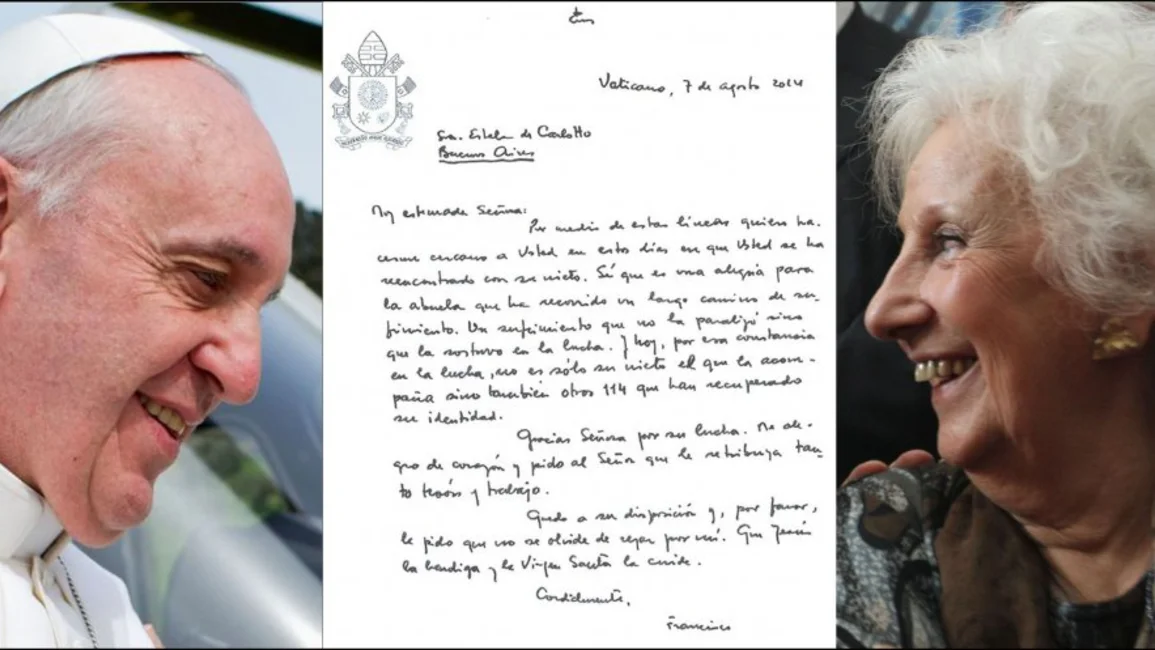 Vaticano, 7 de agosto 2014
Sra. Estela de Carlotto
Buenos Aires
Muy estimada Señora:
Por medio de estas líneas quiero ha-
cerme cercano a Usted en estos días en que Usted se ha
reencontrado con su nieto. Sé que es una alegría para
la abuela que ha recorrido un largo camino de su-
frimiento. Un sufrimiento que no la paralizó sino
que la sostuvo en la lucha. Y hoy, por esa constancia
en la lucha, no es sólo su nieto el que la acom-
paña sino también otros 114 que han recuperado
su identidad.
Gracias Señora por su lucha. Me ale-
gro de corazón y pido al Señor que le retribuya tan-
to tesón y trabajo.
Quedo a su disposición y, por favor,
le pido que no se olvide de rezar por mí. Que Jesús
la bendiga y la Virgen Santa la cuide.
Cordialmente,
Francisco